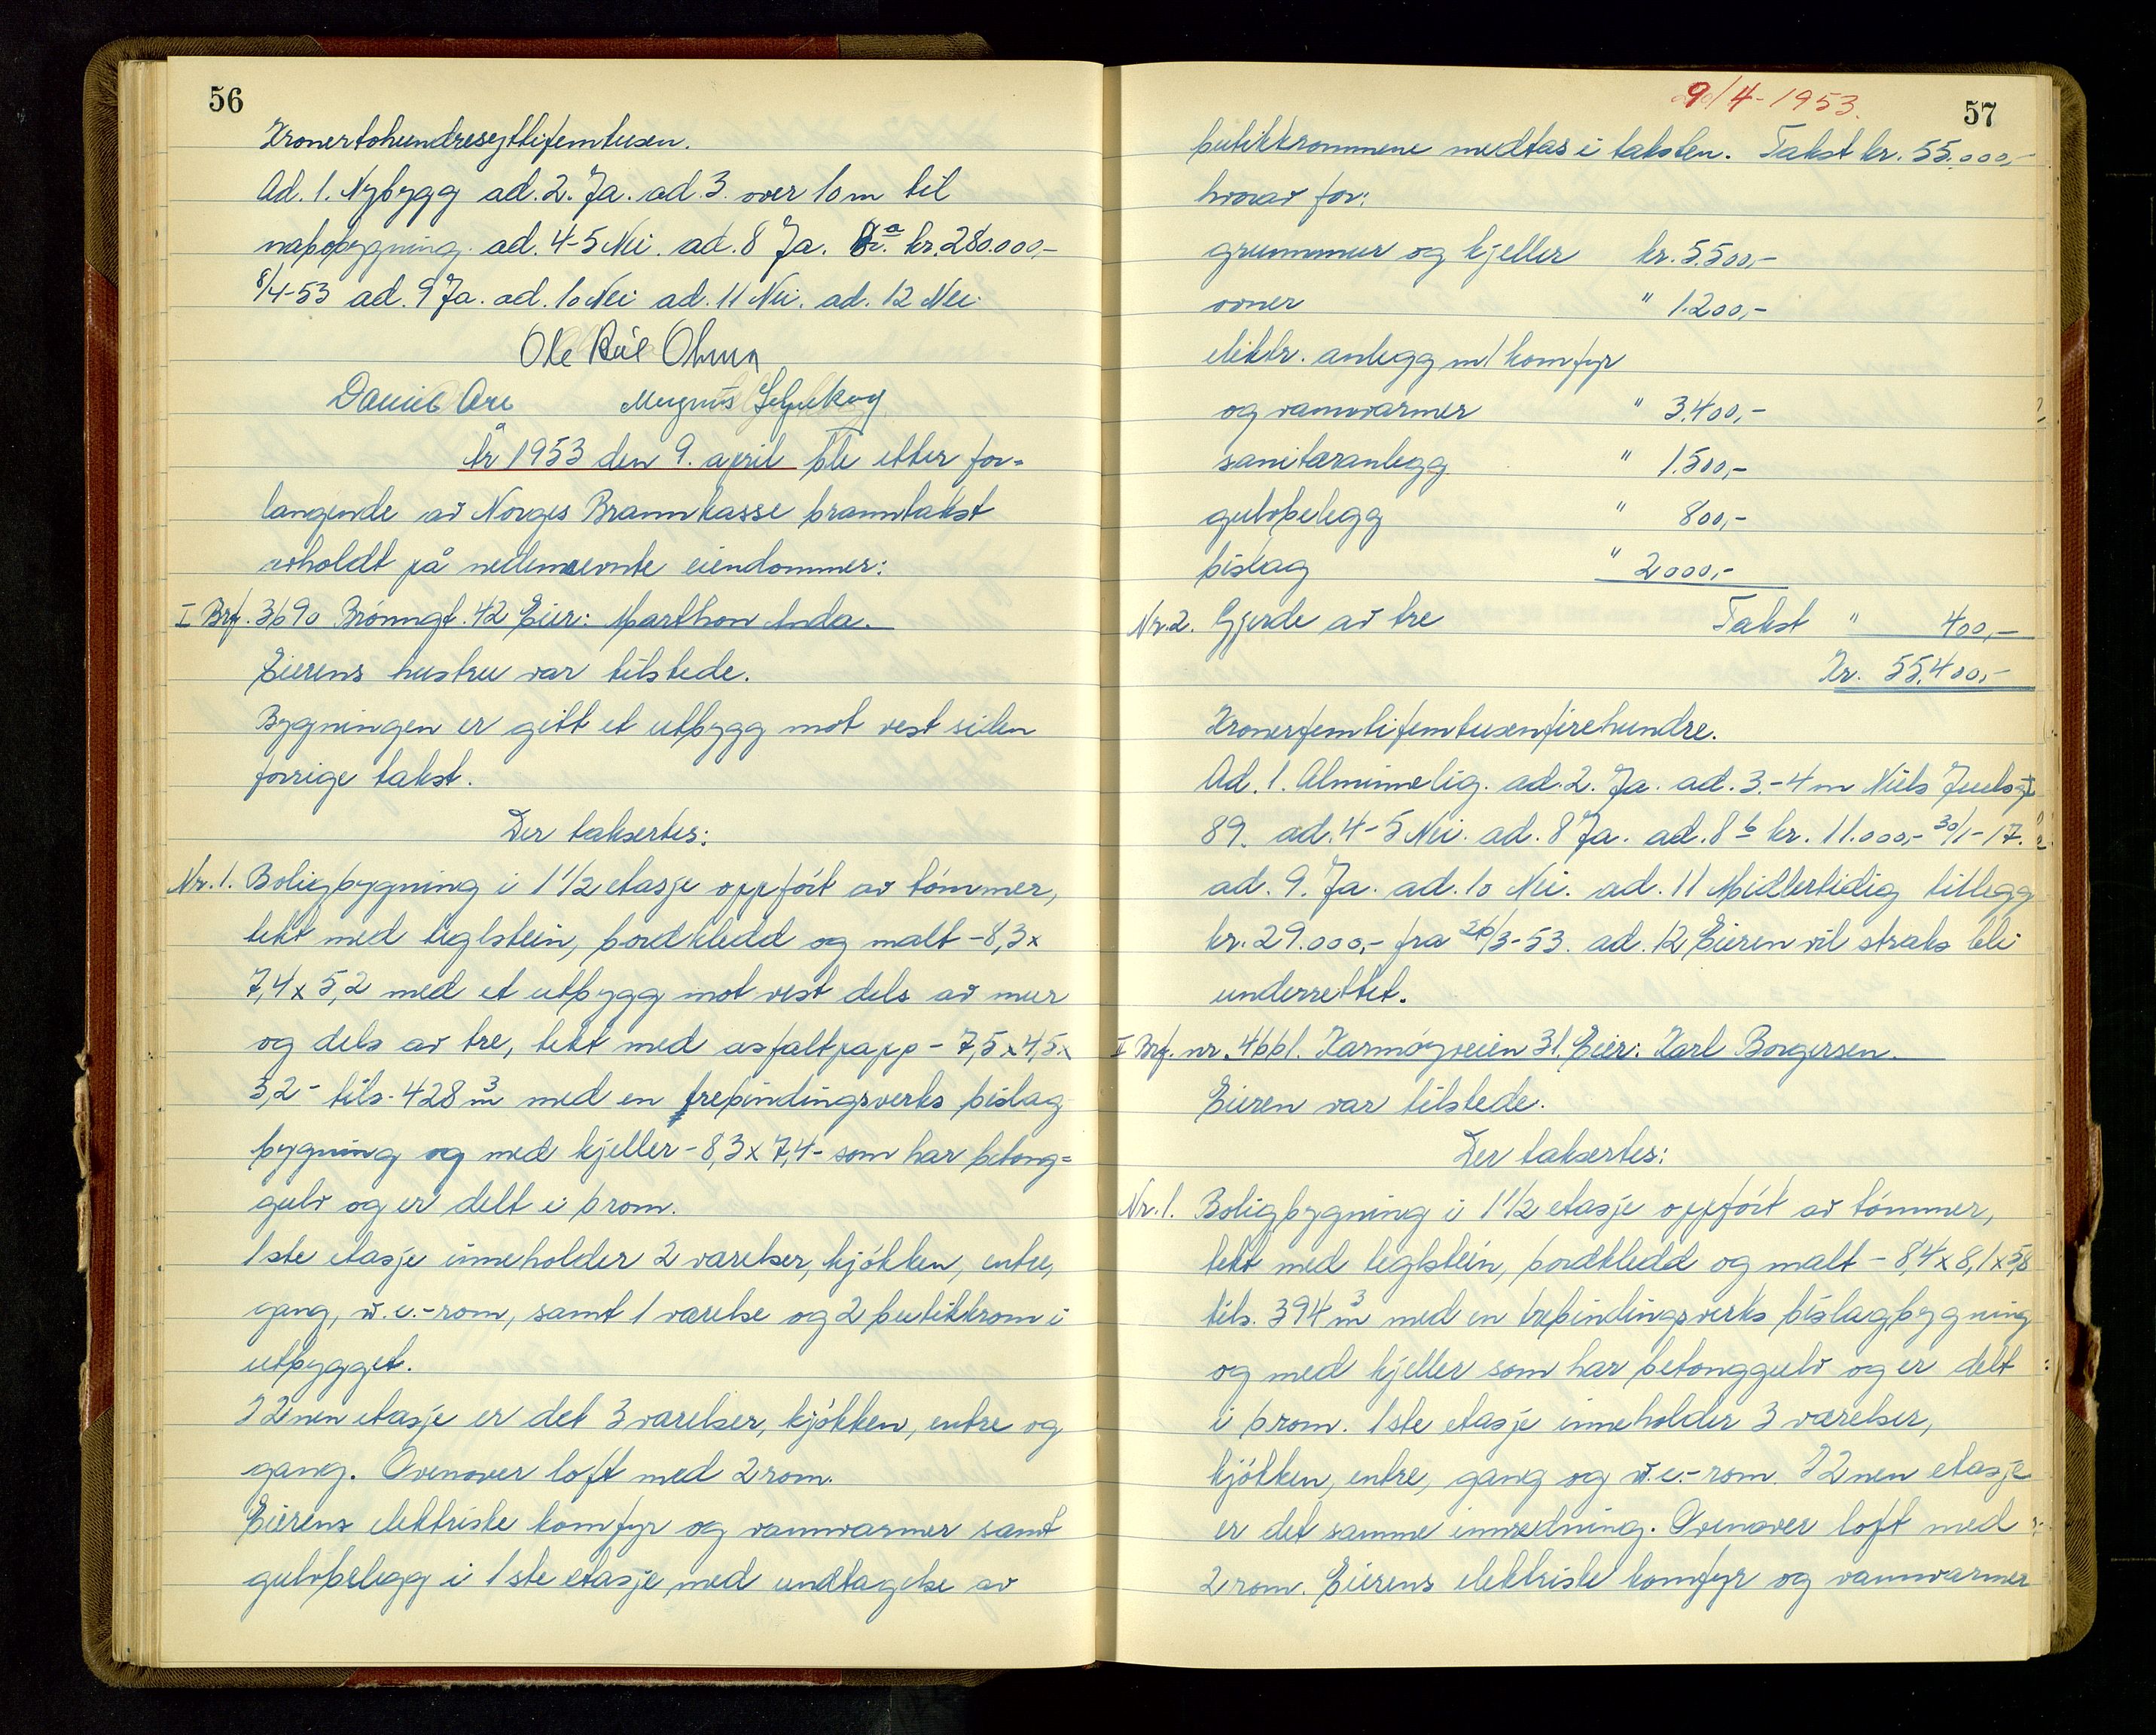 56
Kronertohundresyttifemtusen.
Ad. 1. Nybygg ad. 2. Ja. ad 3. over 10 m til
nabobygning. ad. 4-5 Nei. ad. 8 Ja. 8a. kr. 280.000,-
8/4-53 ad. 9 Ja. ad. 10 Nei ad. 11 Nei. ad. 12 Nei.
Ole
Magnus
År 1953 den 9. april ble etter for-
langende av Norges Brannkasse branntakst
avholdt på nedennevnte eiendommer:
I Brf. 3690 Brönngt. 42 Eier: Marthon Anda.
Eierens hustru var tilstede.
Bygningen er gitt et utbygg mot vest siden
forrige takst.
Der taksertes:
Nr. 1. Boligbygning i 1 1/2 etasje oppfört av tömmer,
tekt med teglstein, bordkledd og malt - 8,3 x
7,4 x 5,2 med et utbygg mot vest dels av mur
og dels av tre, tekt med asfaltpapp - 7,5 x 4,5 x
3,2 - tils. 428 m3 med en trebindingsverks bislag
bygning og med kjeller - 8,3 x 7,4 - som har betong-
gulv og er delt i 6 rom.
1ste etasje inneholder 2 varelser, kjökken, entre,
gang, w.c.-rom, samt 1 værelse og 2 butikkrom i
utbygget.
I 2nen etasje er det 3 varelser, kjökken, entre og
gang. Ovenover loft med 2 rom.
Eierens elektriske komfyr og vannvarmer samt
gulvbelegg i 1ste etasje med undtagelse av
9/4-1953.
57
butikkrommene medtas i taksten. Takst kr. 55.000,-
hvorav for:
grunnmur og kjeller kr. 5.500,-
ovner " 1.200,-
elektr. anlegg m/ komfyr
og vannvarmer " 3.400,-
sanitæranlegg " 1.500,-
gulvbelegg " 800,-
bislag " 2000,-
Nr. 2. Gjerde av tre Takst " 400,-
Kr. 55.400,-
Kronerfemtifemtusenfirehundre.
Ad. 1. Alminnelig. ad. 2. Ja. ad. 3. - 4 m Niels Juelsgt
89. ad. 4-5 Nei. ad. 8 Ja. ad. 8b kr. 11.000,- 30/1-17.
ad. 9. Ja. ad. 10 Nei. ad. 11 Midlertidig tillegg
kr. 29.000,- fra 26/3-53. ad. 12 Eieren vil straks bli
underrettet.
II Brf. nr. 4661. Karmöyveien 31. Eier: Karl Borgersen.
Eieren var tilstede.
Der taksertes:
Nr. 1. Boligbygning i 1 1/2 etasje oppfört av tömmer,
tekt med teglstein, bordkledd og malt - 8,4 x 8,1 x 5,8
tils. 394 m3 med en trebindingsverks bislagbygning
og med kjeller som har betonggulv og er delt
i 6 rom. 1ste etasje inneholder 3 værelser,
kjökken, entre, gang og w.c.-rom. I 2nen etasje
er det samme innredning. Ovenover loft med
2 rom. Eierens elektriske komfyr og vannvarmer